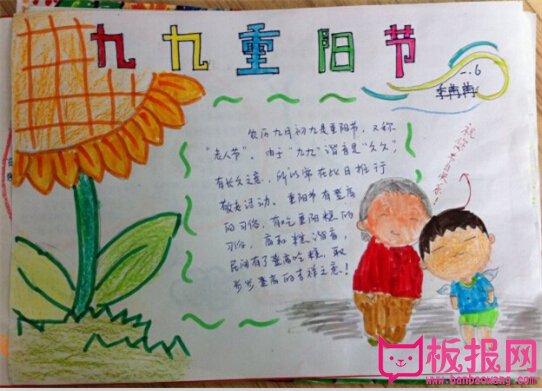 九九重阳节
一.6
李冉冉
农历九月初九是重阳节，又称
“老人节”。由于“九九”谐音是“久久”，
有长久之意，所以常在此日推行
敬老活动。重阳节有登高
的习俗，有吃重阳糕的
习俗，高和糕谐音，
民间有了登高吃糕，取
步步登高的吉祥之意！
板报网
www.banbaowang.com